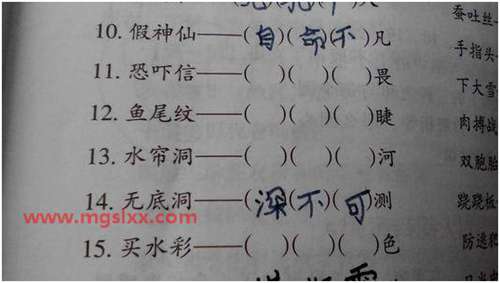 10. 假神仙——(自)(命)(不)凡
11. 恐吓信——( )( )( )畏
12. 鱼尾纹——( )( )( )睫
13. 水帘洞——( )( )( )河
14. 无底洞——(深)(不)(可)测
15. 买水彩——( )( )( )色
www.mgslxx.com
蚕吐丝
手指头
下大雪
肉搏战
双胞胎
跷跷板
防逃犯